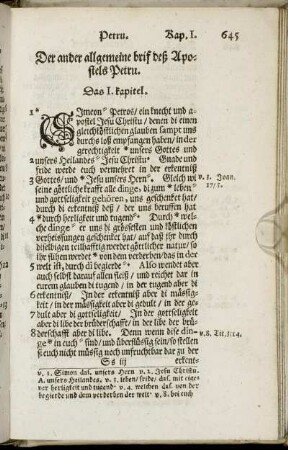 Petru. Kap. I. 645
Der ander allgemeine brif deß Apo-
stels Petru.
Das I. kapitel.
1 * Simeon Petros/ ein knecht und a-
postel Jesu Christu / denen di einen
gleichköstlichen glauben sampt uns
durchs loß empfangen haben/ in der
gerechtigkeit * unsers Gottes und
2 unsers Heilandes Jesu Christu. Gnade und
fride werde euch vermehret in der erkentniß
3 Gottes/ und * Jesu unsers Herrn. Gleich wi
seine götliche krafft alle dinge/ di zum * leben
und gottseligkeit gehören / uns geschenkt hat/
durch di erkentniß deß / der uns beruffen hat
4 * durch herligkeit und tugend * Durch * wel-
che dinge er uns di grössesten und köstlichen
verheissungen geschenket hat/ auf daß ihr durch
diselbigen teilhafftig werdet götlicher natur/ so
ihr flihen werdet * von dem verderben/das in der
5 welt ist/ durch di begierde * Also wendet aber
auch selbst darauf allen fleiß/ und reichet dar in
eurem glauben di tugend / in der tugend aber di
6 erkentniß/ In der erkentniß aber di mässig-
keit / in der mässigkeit aber di gedult / in der ge-
7 dult aber di gottseligkeit / In der gottseligkeit
aber di brüderschafft/ in der brü-
8 derschafft aber di libe. Denn wenn dise din-
ge * in euch sind / und überflüssig sein/ so stellen
si euch nicht müssig noch unfruchtbar dar zu der
Ss iij erkent-
v. 3. Joan.
17/3.
v. 8. Tit. 3/14.
v. 1. Simon das. unsers Hern v. 2. Jesu Christu.
A. unsers Heilandes, v. 3. leben/ fride/ das. mit eige-
ner herligkeit und tugend v. 4. welchen das. von der
begierde und dem verderben der welt v. 8. bei euch